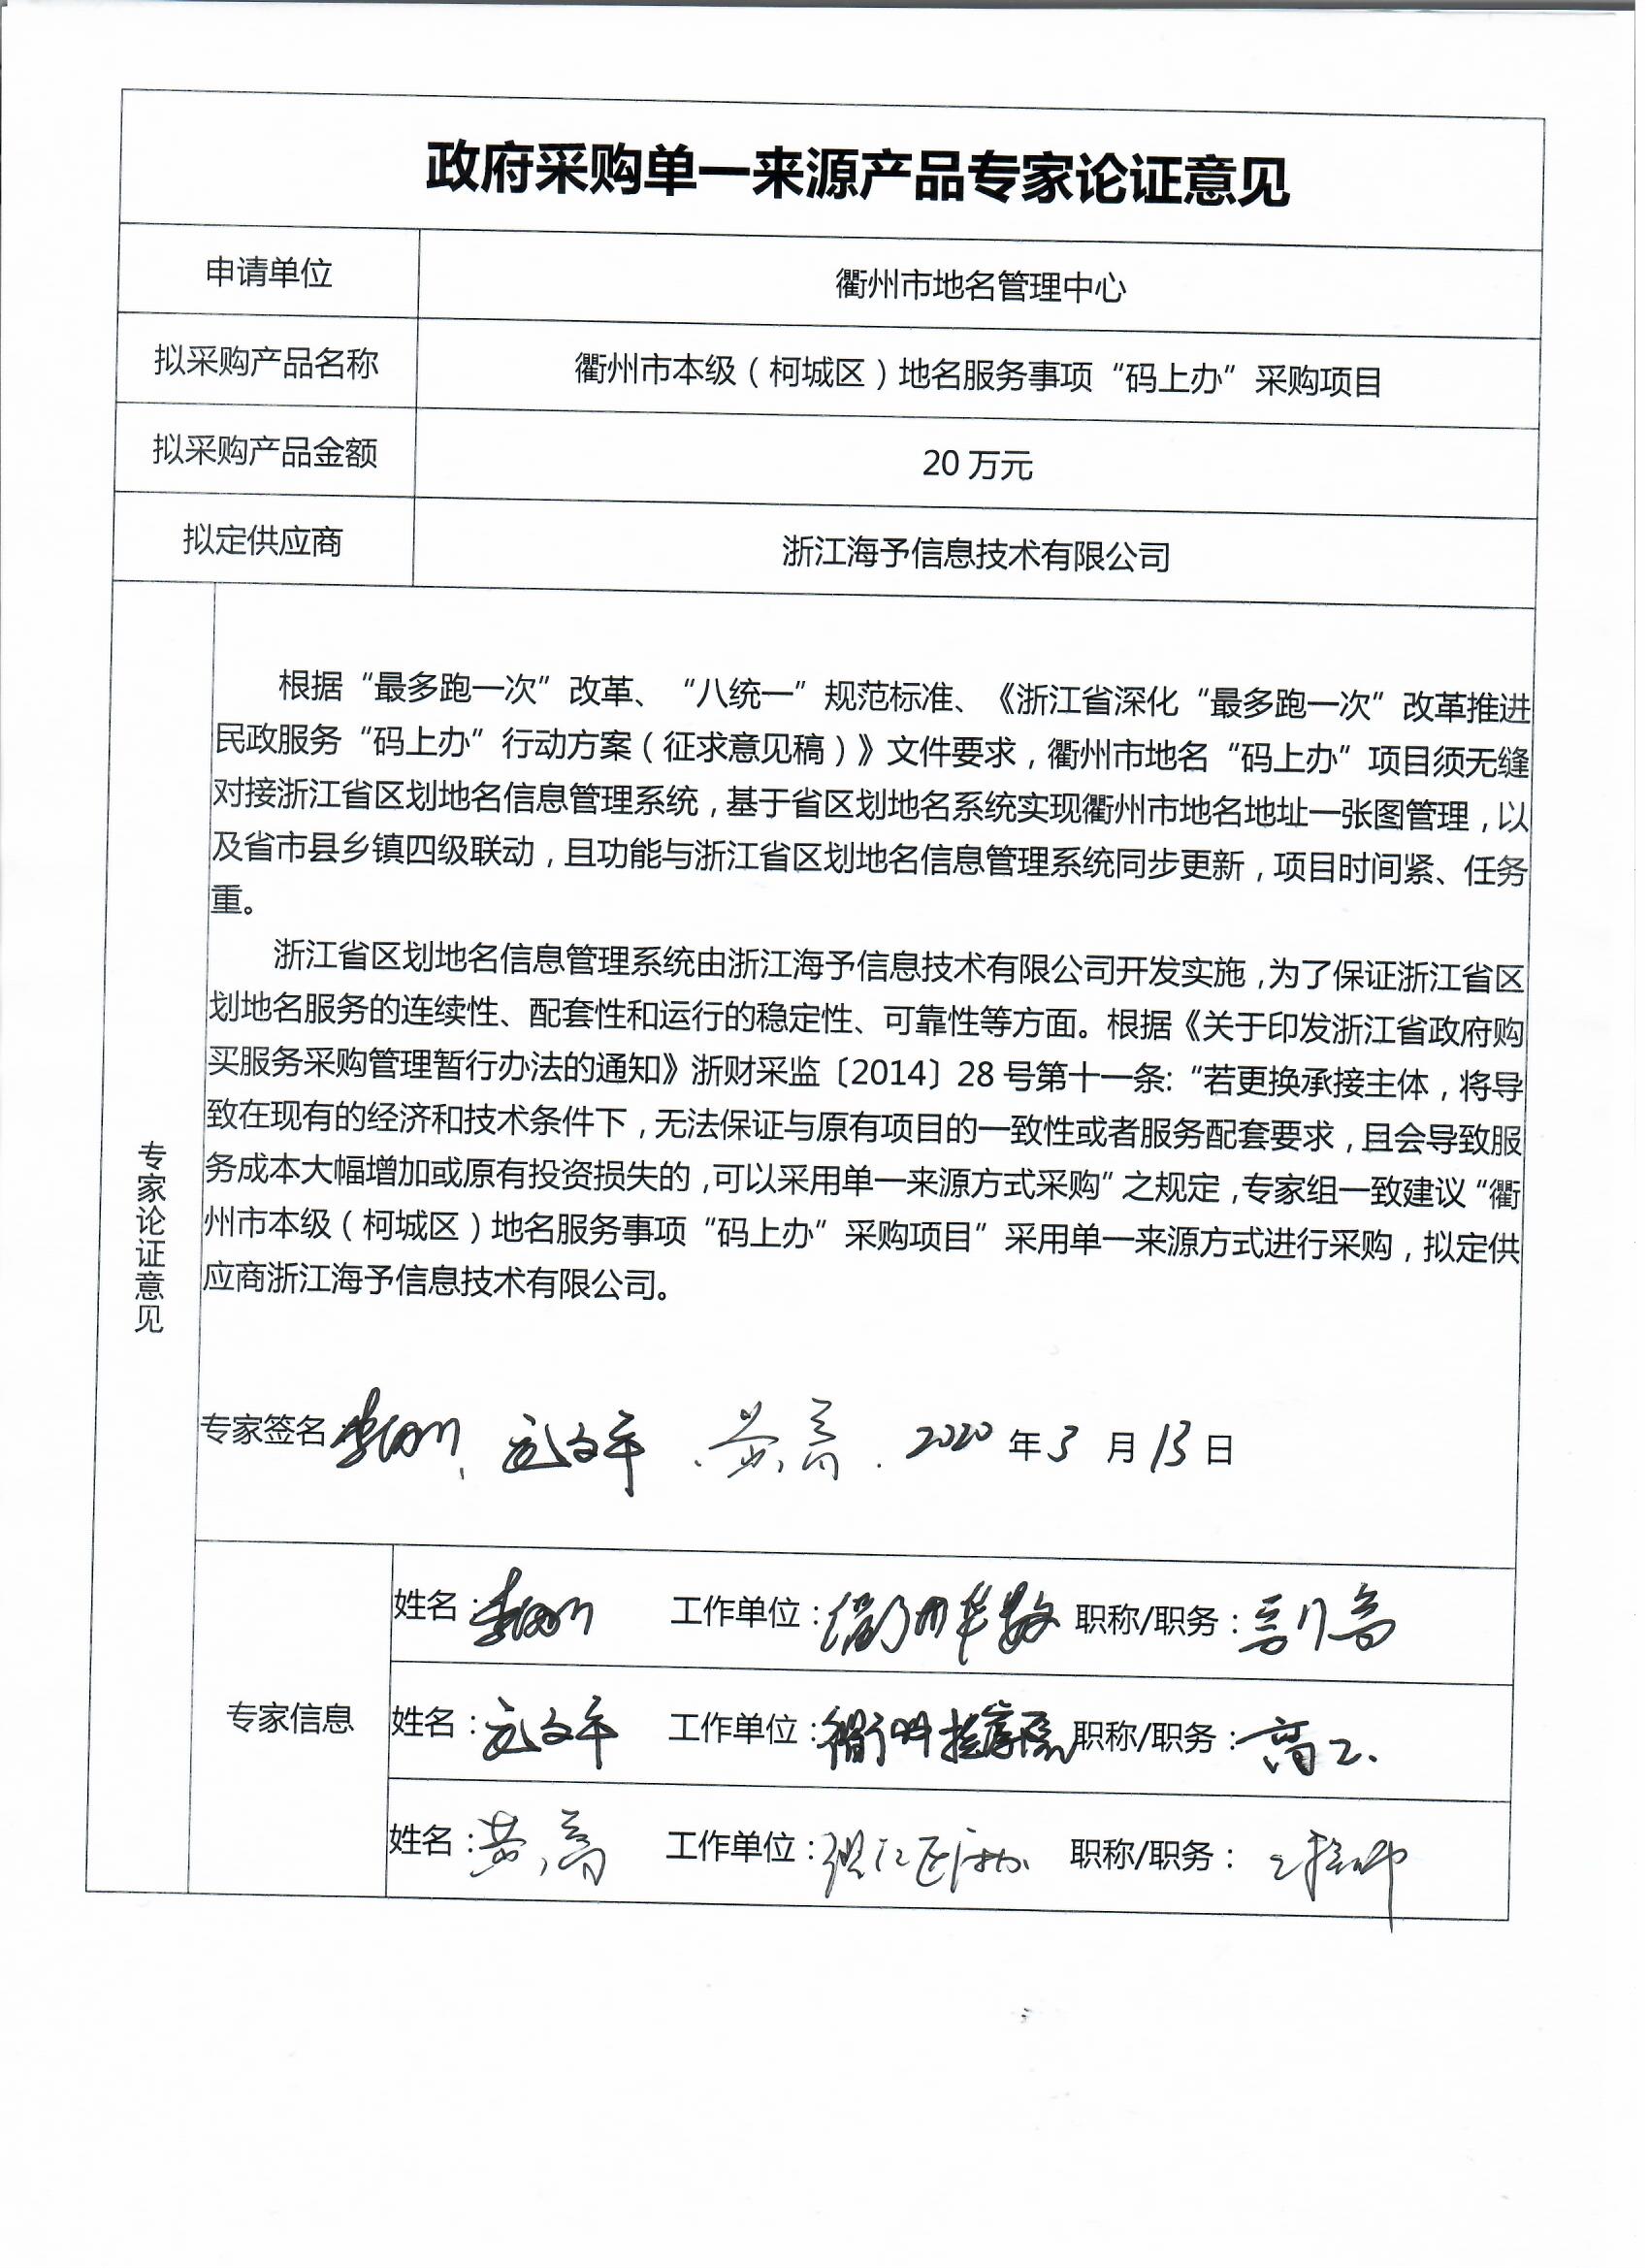 政府采购单一来源产品专家论证意见
申请单位 衢州市地名管理中心
拟采购产品名称 衢州市本级（柯城区）地名服务事项“码上办”采购项目
拟采购产品金额 20万元
拟定供应商 浙江海予信息技术有限公司
专家论证意见
根据“最多跑一次”改革、“八统一”规范标准、《浙江省深化“最多跑一次”改革推进
民政服务“码上办”行动方案（征求意见稿）》文件要求，衢州市地名“码上办”项目须无缝
对接浙江省区划地名信息管理系统，基于省区划地名系统实现衢州市地名地址一张图管理，以
及省市县乡镇四级联动，且功能与浙江省区划地名信息管理系统同步更新，项目时间紧、任务
重。
浙江省区划地名信息管理系统由浙江海予信息技术有限公司开发实施，为了保证浙江省区
划地名服务的连续性、配套性和运行的稳定性、可靠性等方面。根据《关于印发浙江省政府购
买服务采购管理暂行办法的通知》浙财采监〔2014〕28号第十一条：“若更换承接主体，将导
致在现有的经济和技术条件下，无法保证与原有项目的一致性或者服务配套要求，且会导致服
务成本大幅增加或原有投资损失的，可以采用单一来源方式采购”之规定，专家组一致建议“衢
州市本级（柯城区）地名服务事项“码上办”采购项目”采用单一来源方式进行采购，拟定供
应商浙江海予信息技术有限公司。
专家签名： 2020年3月13日
专家信息
姓名： 工作单位：衢州华数 职称/职务：副高
姓名： 工作单位： 职称/职务：高工
姓名： 工作单位： 职称/职务：工程师